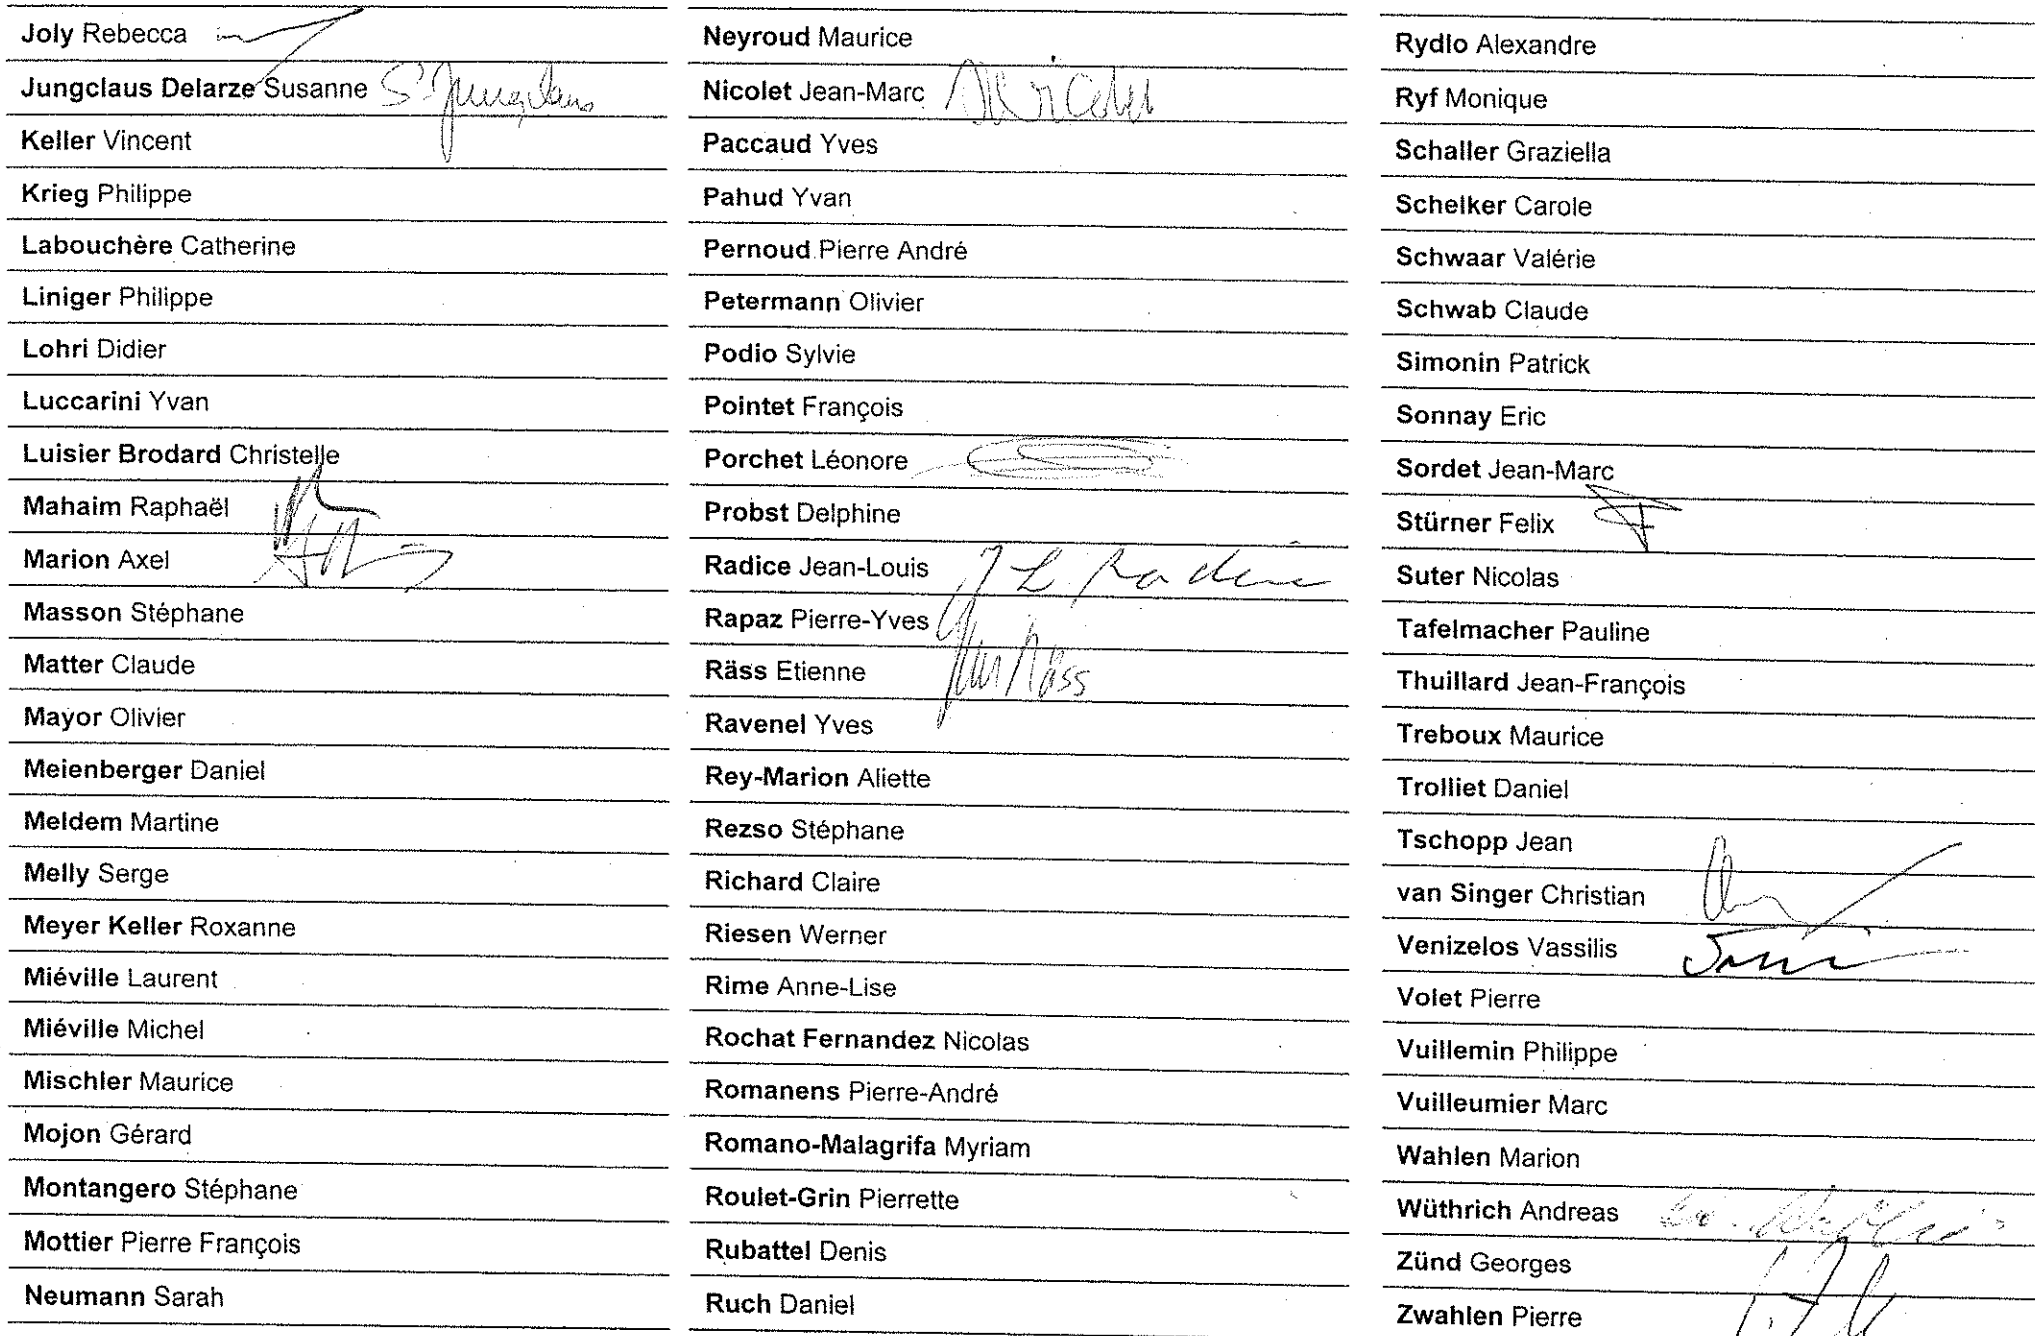 Joly Rebecca
Jungclaus Delarze Susanne S. Jungclaus
Keller Vincent
Krieg Philippe
Labouchère Catherine
Liniger Philippe
Lohri Didier
Luccarini Yvan
Luisier Brodard Christelle
Mahaim Raphaël
Marion Axel
Masson Stéphane
Matter Claude
Mayor Olivier
Meienberger Daniel
Meldem Martine
Melly Serge
Meyer Keller Roxanne
Miéville Laurent
Miéville Michel
Mischler Maurice
Mojon Gérard
Montangero Stéphane
Mottier Pierre François
Neumann Sarah
Neyroud Maurice
Nicolet Jean-Marc Nicolet
Paccaud Yves
Pahud Yvan
Pernoud Pierre André
Petermann Olivier
Podio Sylvie
Pointet François
Porchet Léonore
Probst Delphine
Radice Jean-Louis J L Radice
Rapaz Pierre-Yves
Räss Etienne Räss
Ravenel Yves
Rey-Marion Aliette
Rezso Stéphane
Richard Claire
Riesen Werner
Rime Anne-Lise
Rochat Fernandez Nicolas
Romanens Pierre-André
Romano-Malagrifa Myriam
Roulet-Grin Pierrette
Rubattel Denis
Ruch Daniel
Rydlo Alexandre
Ryf Monique
Schaller Graziella
Schelker Carole
Schwaar Valérie
Schwab Claude
Simonin Patrick
Sonnay Eric
Sordet Jean-Marc
Stürner Felix
Suter Nicolas
Tafelmacher Pauline
Thuillard Jean-François
Treboux Maurice
Trolliet Daniel
Tschopp Jean
van Singer Christian
Venizelos Vassilis
Volet Pierre
Vuillemin Philippe
Vuilleumier Marc
Wahlen Marion
Wüthrich Andreas
Zünd Georges
Zwahlen Pierre